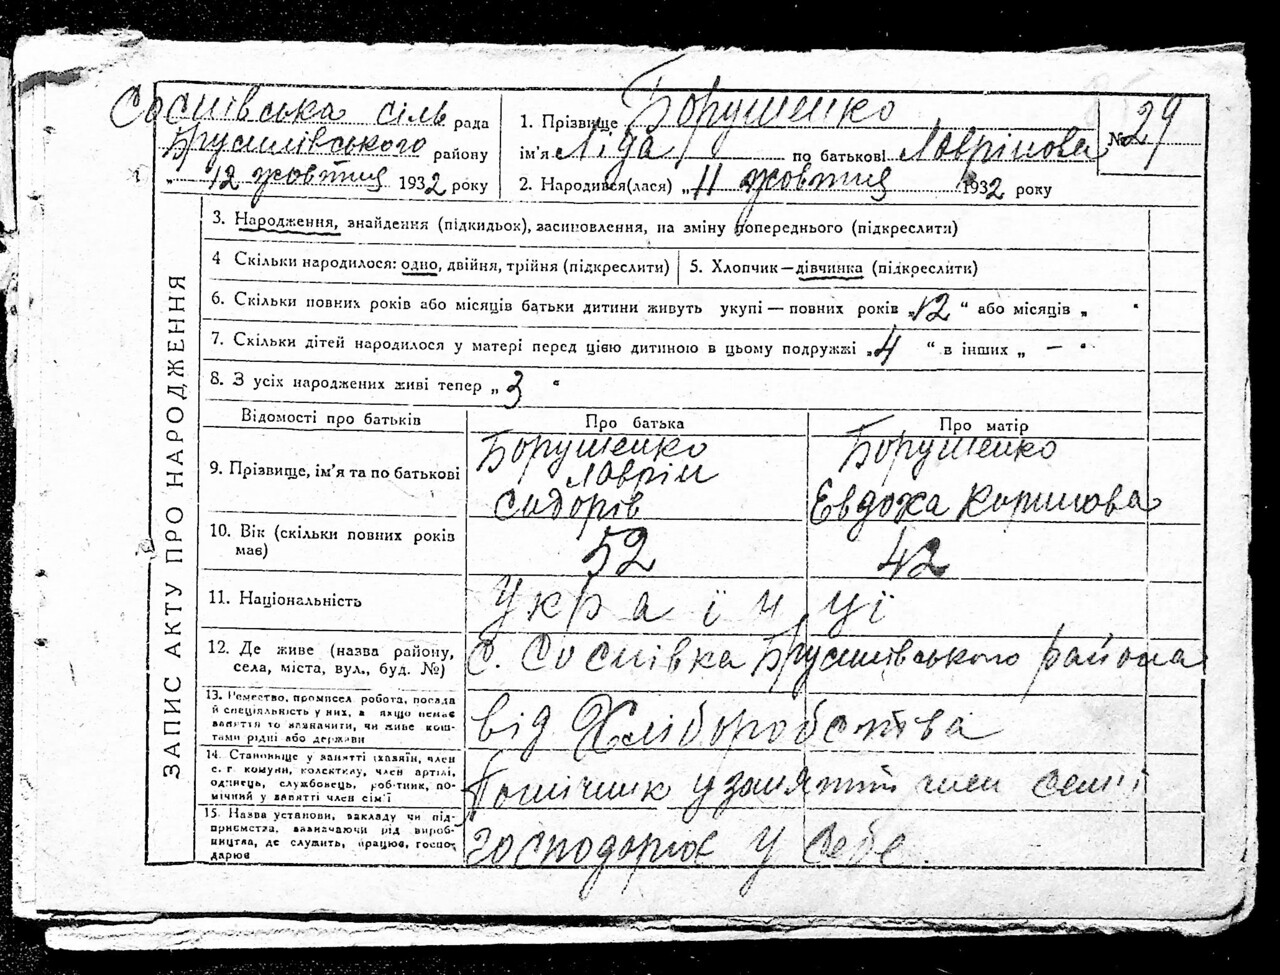 Соснівська сіль рада
Брусилівського району
„ 12 жовтня 1932 року
1. Прізвище Борушенко
ім'я Ліда по батькові Лаврінова
2. Народився(лася) „ 11 жовтня 1932 року
№ 29
ЗАПИС АКТУ ПРО НАРОДЖЕННЯ
3. Народження, знайдення (підкидьок), засиновлення, на зміну попереднього (підкреслити)
4 Скільки народилося: одно, двійня, трійня (підкреслити) 5. Хлопчик—дівчинка (підкреслити)
6. Скільки повних років або місяців батьки дитини живуть укупі — повних років „12 “ або місяців „ “
7. Скільки дітей народилося у матері перед цією дитиною в цьому подружжі „4 “ в інших „ — “
8. З усіх народжених живі тепер „ 3 “
Відомості про батьків Про батька Про матір
9. Прізвище, ім'я та по батькові
Борушенко
Лаврін
Сидорів
Борушенко
Евдоха
10. Вік (скільки повних років
має)
52 42
11. Національність Українці
12. Де живе (назва району,
села, міста, вул., буд. №)
с. Соснівка Брусилівського района
13. Ремество, промисел робота, посада
й спеціяльність у них, а якщо немає
заняття то зазначити, чи живе кош-
тами рідні або держави
від Хліборобства
14. Становище у занятті (хазяїн, член
с. г. комуни, колективу, член артілі,
одинець, службовець, робітник, по-
мічний у занятті член сім'ї
Помічник у занятті член семї
15. Назва установи, закладу чи під-
приємства, зазначаючи рід вироб-
ництва, де служить, працює, госпо-
дарює
господарює у себе.